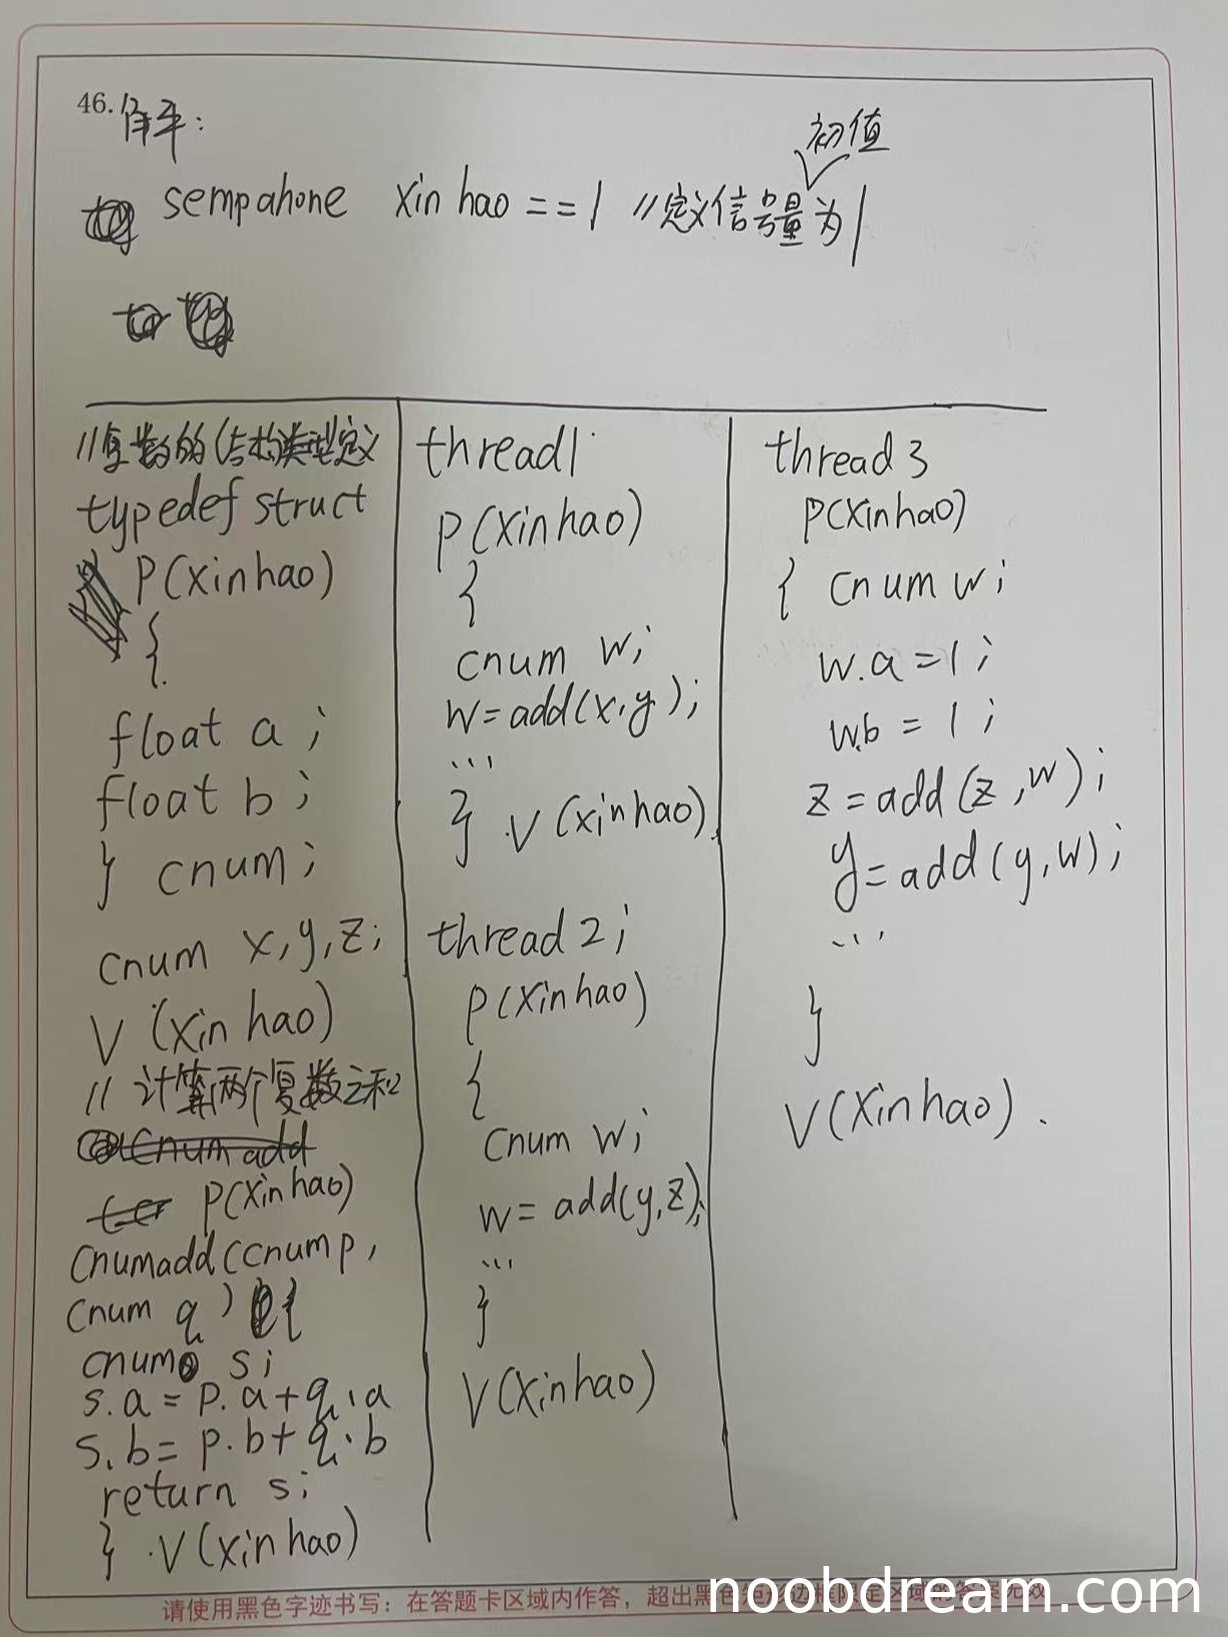 46.解:
初值
sempahone xinhao ==1 //定义信号量为1
//复数的结构类型定义
typedef struct
P(xinhao)
{
float a;
float b;
} cnum;
cnum x,y,z;
V(xinhao)
// 计算两个复数之和
cnum add
P(xinhao)
Cnumadd(cnump,
Cnum q){
cnum s;
s.a = p.a+q.a
s.b= p.b+q.b
return s;
} .V(xinhao)
thread1
P(xinhao)
{
cnum w;
w=add(x,y);
...
} .V(xinhao)
thread2;
P(xinhao)
{
cnum w;
w= add(y,z);
...
}
V(xinhao)
thread3
P(xinhao)
{ cnum w;
w.a=1;
w.b = 1;
z=add(z,w);
y=add(y,w);
...
}
V(xinhao).
请使用黑色字迹书写:在答题卡区域内作答,超出黑色
noobdream.com